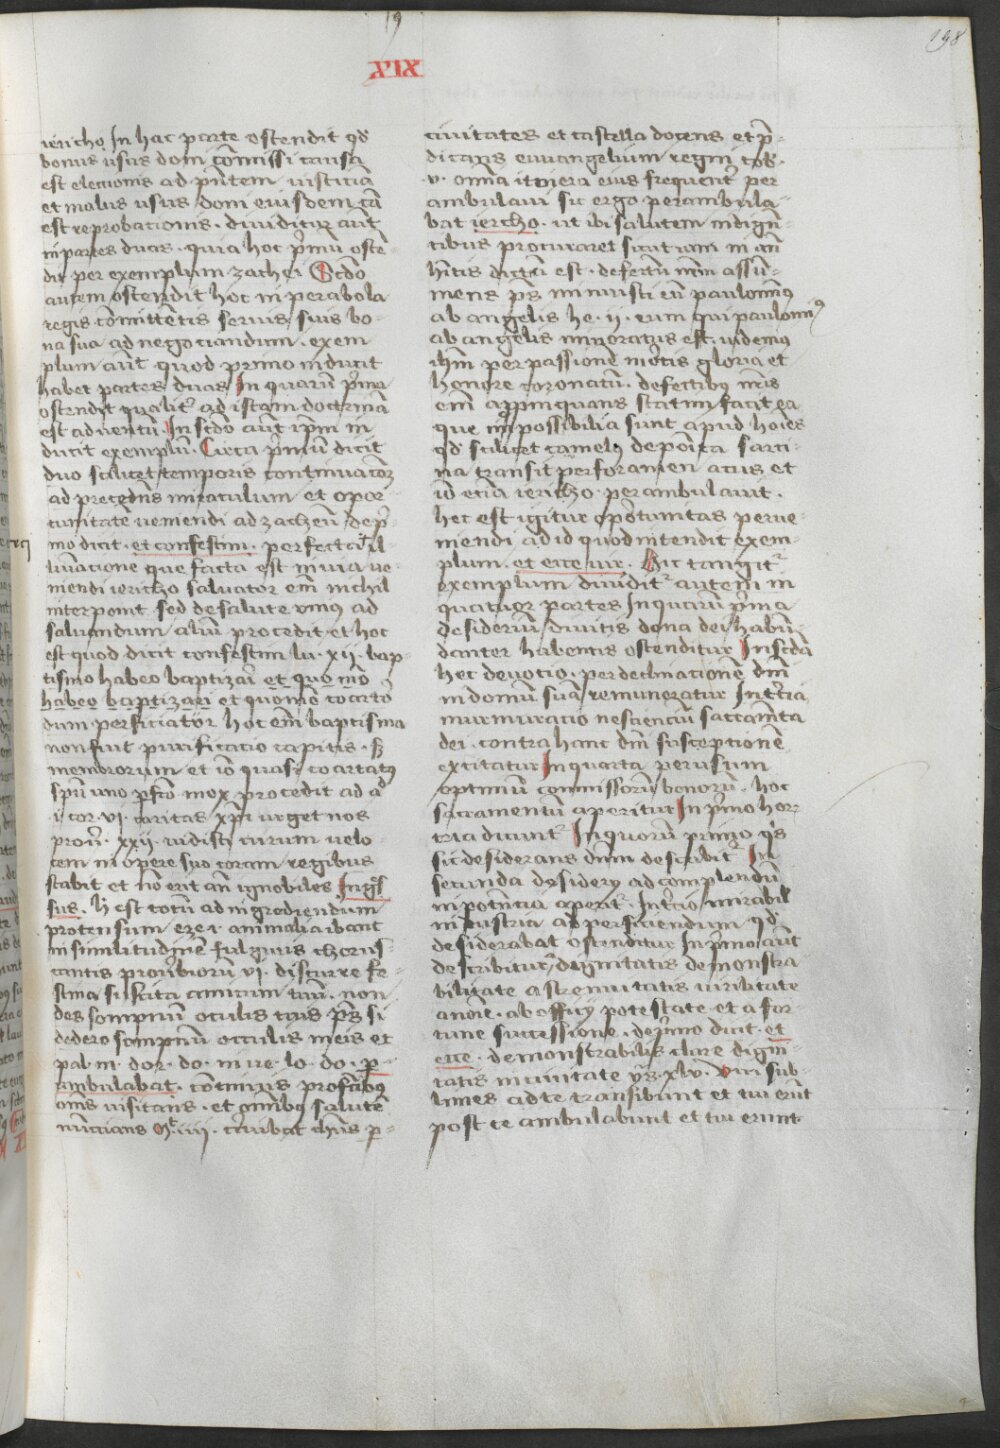 198
XIX
iericho In hac parte ostendit qđ
bonus usus doni cōmissi causa
est electionis ad pñtem iusticiā
et malus usus doni eiusdem cā
est reprobationis . diuiditur aūt
in partes duas . quia hoc pͥmū oste-
dit per exemplum zachei Scđo
autem ostendit hoc in perabola
regis cōmittētis seruis suis bo-
na sua ad negociandum . exem
plum aūt quod primo inducit
habet partes duas In quarū pͥma
ostendit qualitͬ ad istam doctrinā
est aduentū . In scđo aūt ipm in
ducit exemplū . Circa pͥmū dicit
duo scilicet temporis continuacōꝫ
ad precedēs miraculum et opor
tunitatē ueniendi ad zacheū de pͥ-
mo dicit . et confestim . perfecta il-
luminacione que facta est in uia ue-
niendi iericho saluator em̄ nichil
interponit sed de salute unius ad
saluandum aliū procedit et hoc
est quod dicit confestim lu . xii . bap-
tismo habeo baptizari et quo mō
habeo baptizari et quomō coarto
dum perficiatur hoc em̄ baptisma
non fiut purificatio capitis . sꝫ
membrorum et iō quasi coartatꝰ
spū uno pfcō mox procedit ad ad
i cor . vi . caritas xp̄i urget nos
prou . xxii . uidisti uirum uelo-
cem in opere suo coram regibus
stabit et nō erit an̄ ignobiles Ingͬs
sus . h est totū ad ingrediendum
protensum eze i . animalia ibant
in similitudinē fulguris choruſ
cantis prouͬbiorū vi . discurre fe-
stina suscita amicum tuū . non
des sompnū oculis tuis pͨs si
dedero sompnū occulis meis et
pal . in . dor . do . in ue . lo . do . p
ambulabat . cōtinuis profcībꝰ
om̄s uisitans . et om̄ibꝰ salutē
nuncians Mͭ . iiii . cͥuibat ih̄us p-
ciuitates et castella docens et p̄-
dicans euuangelium regni tob .
v . om̄ia itinera eius frequentͬ per
ambulaui sic ergo perambula-
bat iericho . ut ibi salutem indigē-
tibus procuraret sicut um in an̄
hītis dictū est . defectū nr̄m assū-
mens pͨs minuisti eū paulominꝰ
ab angelis he . ii . eum qui paulominꝰ
ab angelis minoratus est . uidemus
ih̄m per passionē mōtis gloria et
honore coronatū . defectibꝰ nr̄is
em̄ appinquans statim facit ea
que impossibilia sunt apud hoīes
qđ scilicet camelꝰ deposita sarci-
na transit per foramen acus et
iō etia iericho . perambulauit .
hec est igitur oportunitas perue-
niendi ad id quod intendit exem-
plum . et ecce uir . Hic tangitͬ
exemplum diuiditͬ autem in
quatuor partes In quarū pͥma
desideriū diuitis dona dei habū-
danter habentis ostenditur In scdā
hec deuocio . per declinacionē dn̄m
in domū suā remuneratur In tͬcia
murmuracio nescienciū sacramēta
dei . contra hanc dn̄i susceptionē
excitatur In quarta per usum
optimū commissorū bonorū . hoc
sacramentū aperitur In pͥmo hor-
tria dicuntͬ In quorū primo qͥs
sit desiderans dn̄m describitͬ In
secunda desiderij ad complendū
inpotēncia aperitͬ . In tͬcio mirabil
industria ad perficiendum qđ
desiderabat ostenditur In pͥmo aūt
describitur dignitatis demonstra
bilitate a strennuitatis uirilitate
anōie . ab officij potestate et a for
tune successione . de pͥmo dicit . et
ecce . demonstrabilis clare digni-
tatis in uiuitate ys . xlv . uiri sub
limes ad te transibunt et tui erūt
post te ambulabunt et tui erunt